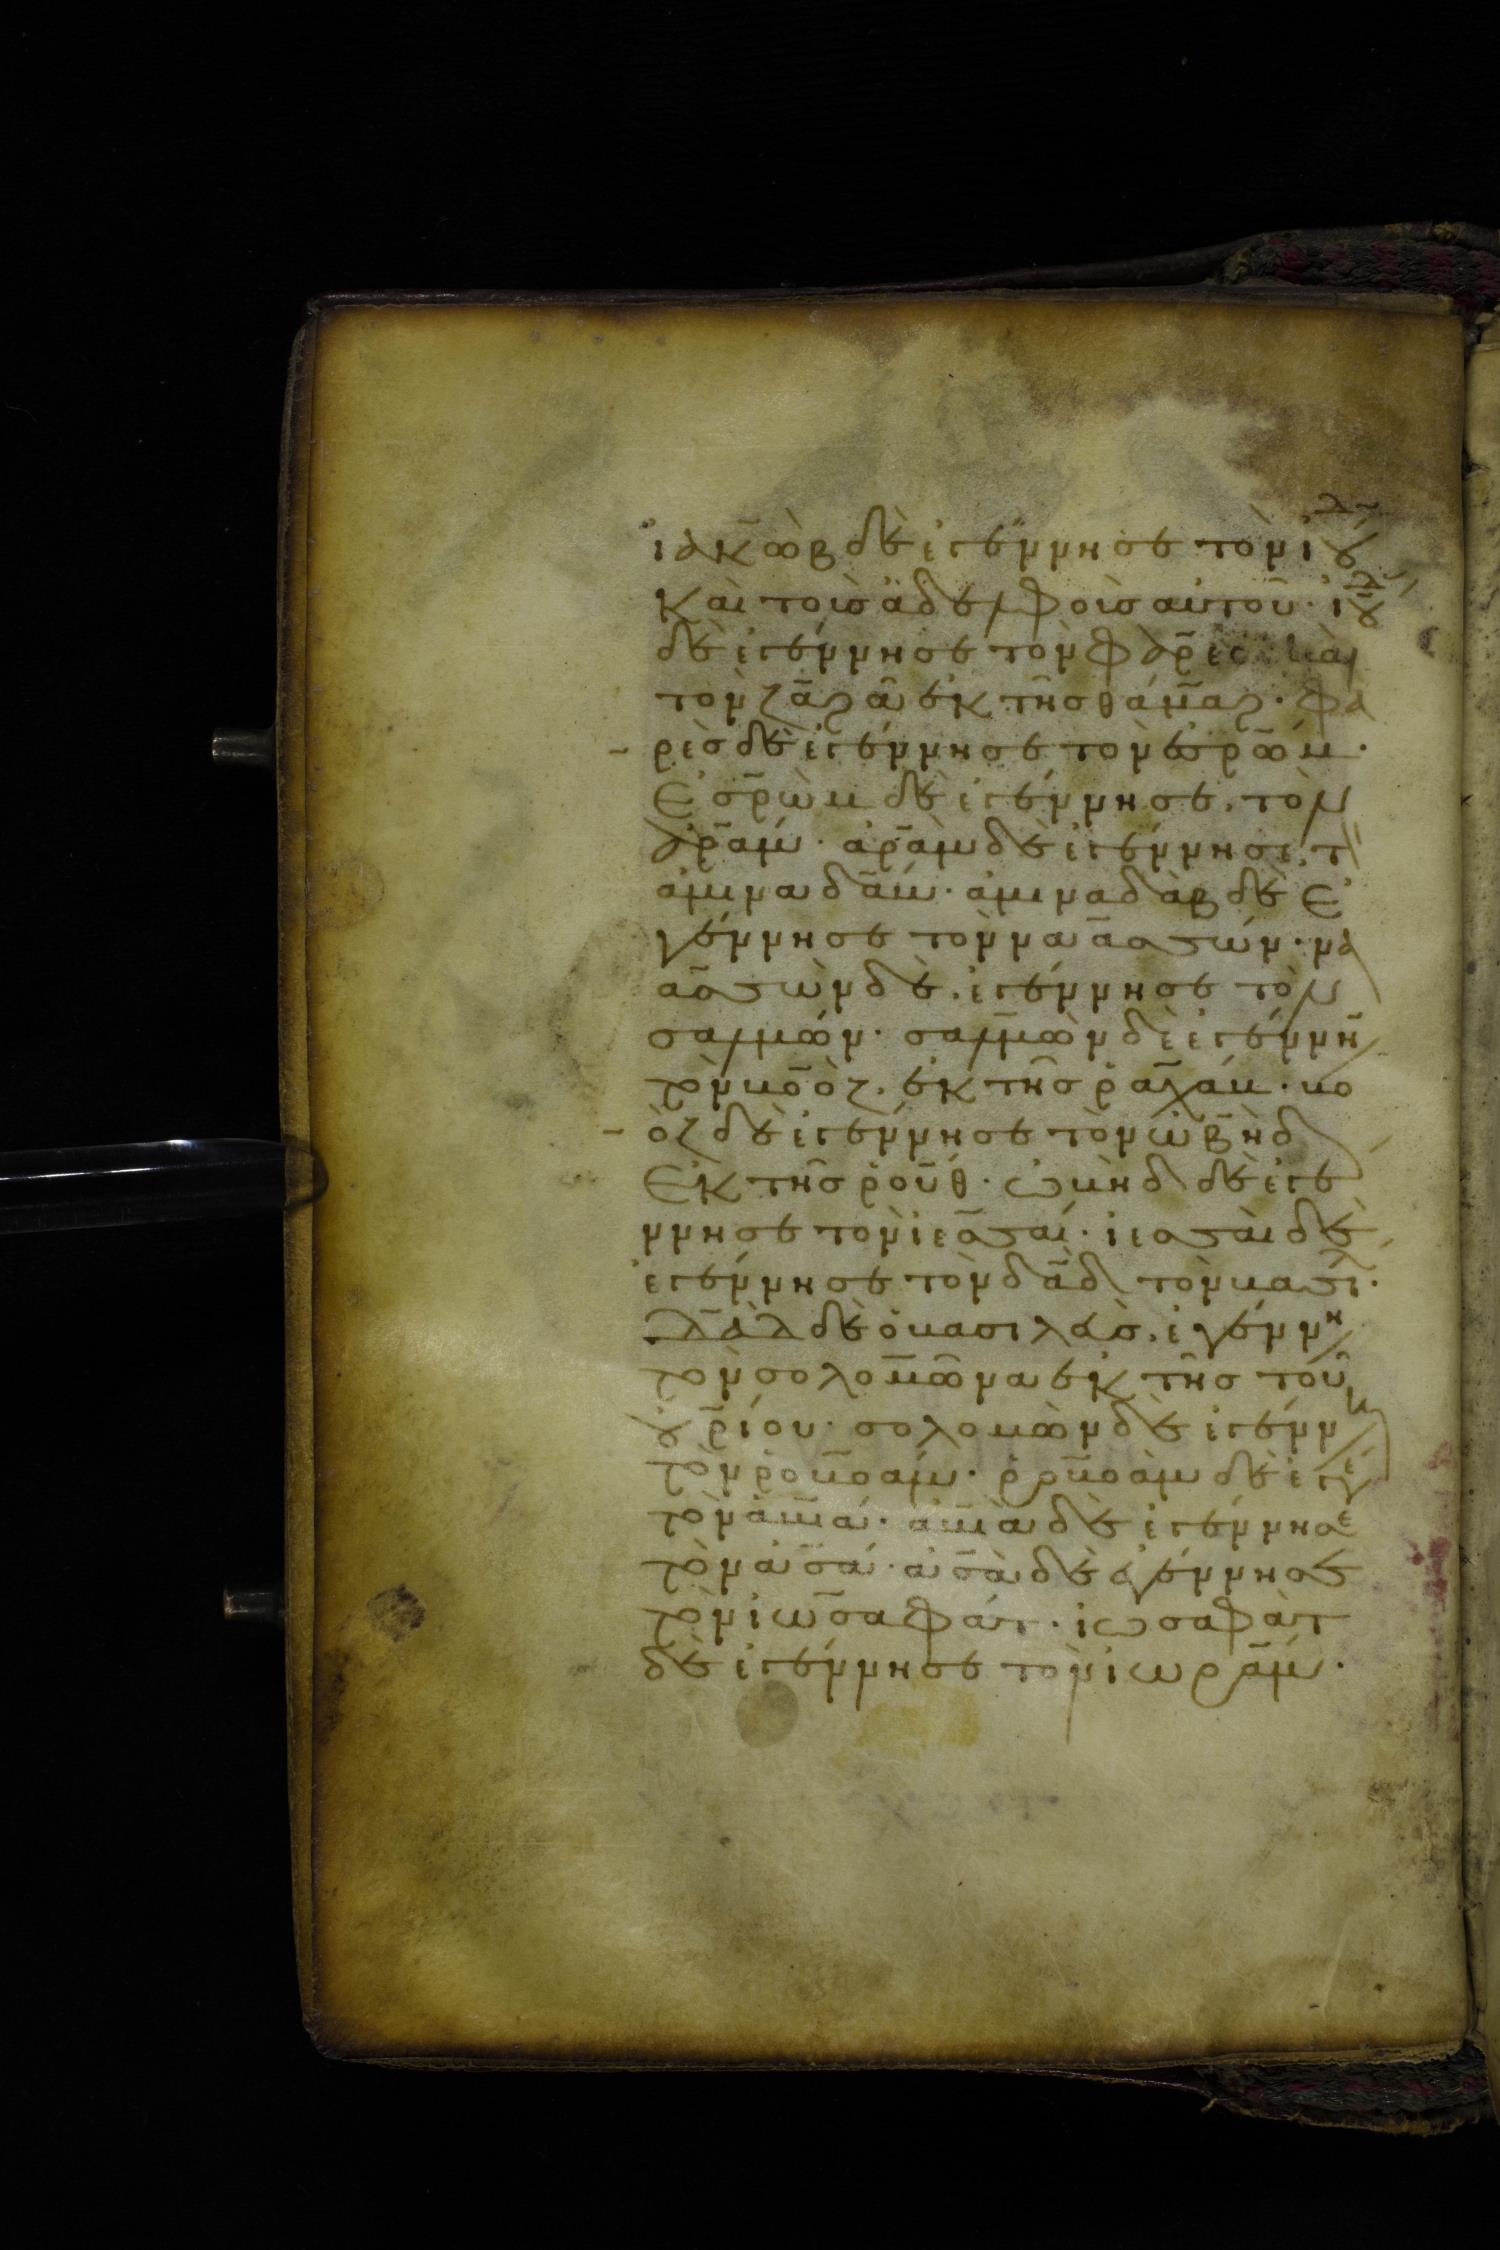 ἰακὼβ δὲ ἐγέννησε τὸν ἰούδ
καὶ τοὺς ἀδελφοὺς αὐτοῦ · ἰούδ
δὲ ἐγέννησε τὸν φαρὲς καὶ
τὸν ζαρὰ ἐκ τῆς θάμαρ · φα
ρὲς δὲ ἐγέννησε τὸν ἐσρώμ ·
Ἐσρὼμ δὲ ἐγέννησε, τὸν
ἀράμ · ἀρὰμ δὲ ἐγέννησε, τ
ἀμιναδάμ · ἀμιναδὰβ δὲ ἐ
γέννησε τὸν ναασσών · να
ασσὼν δὲ, ἐγέννησε τὸν
σαλμών · σαλμὼν δὲ ἐγέννη
τὸν βοὸζ, ἐκ τῆς ῥαχάβ · βο
ὸζ δὲ ἐγέννησε τὸν ὠβὴδ
Ἐκ τῆς ῥοῦθ · ὠβὴδ δὲ ἐγε
ννησε τὸν ἰεσσαί · ἰεσσαὶ δὲ
ἐγέννησε τὸν δαδ τὸν βασι ·
δαδ δὲ ὁ βασιλεὺς, ἐγέννη
τὸν σολομῶνα ἐκ τῆς τοῦ
οὐρίου · σολομὼν δὲ ἐγένν
τὸν ῥοβοάμ · ῥοβοὰμ δὲ ἐγέ
τὸν ἀβιά · ἀβιὰ δὲ ἐγέννησε
τὸν ἀσά · ἀσὰ δὲ ἐγέννησε
τὸν ἰωσαφάτ · ἰωσαφὰτ
δὲ ἐγέννησε τὸν ἰωράμ ·